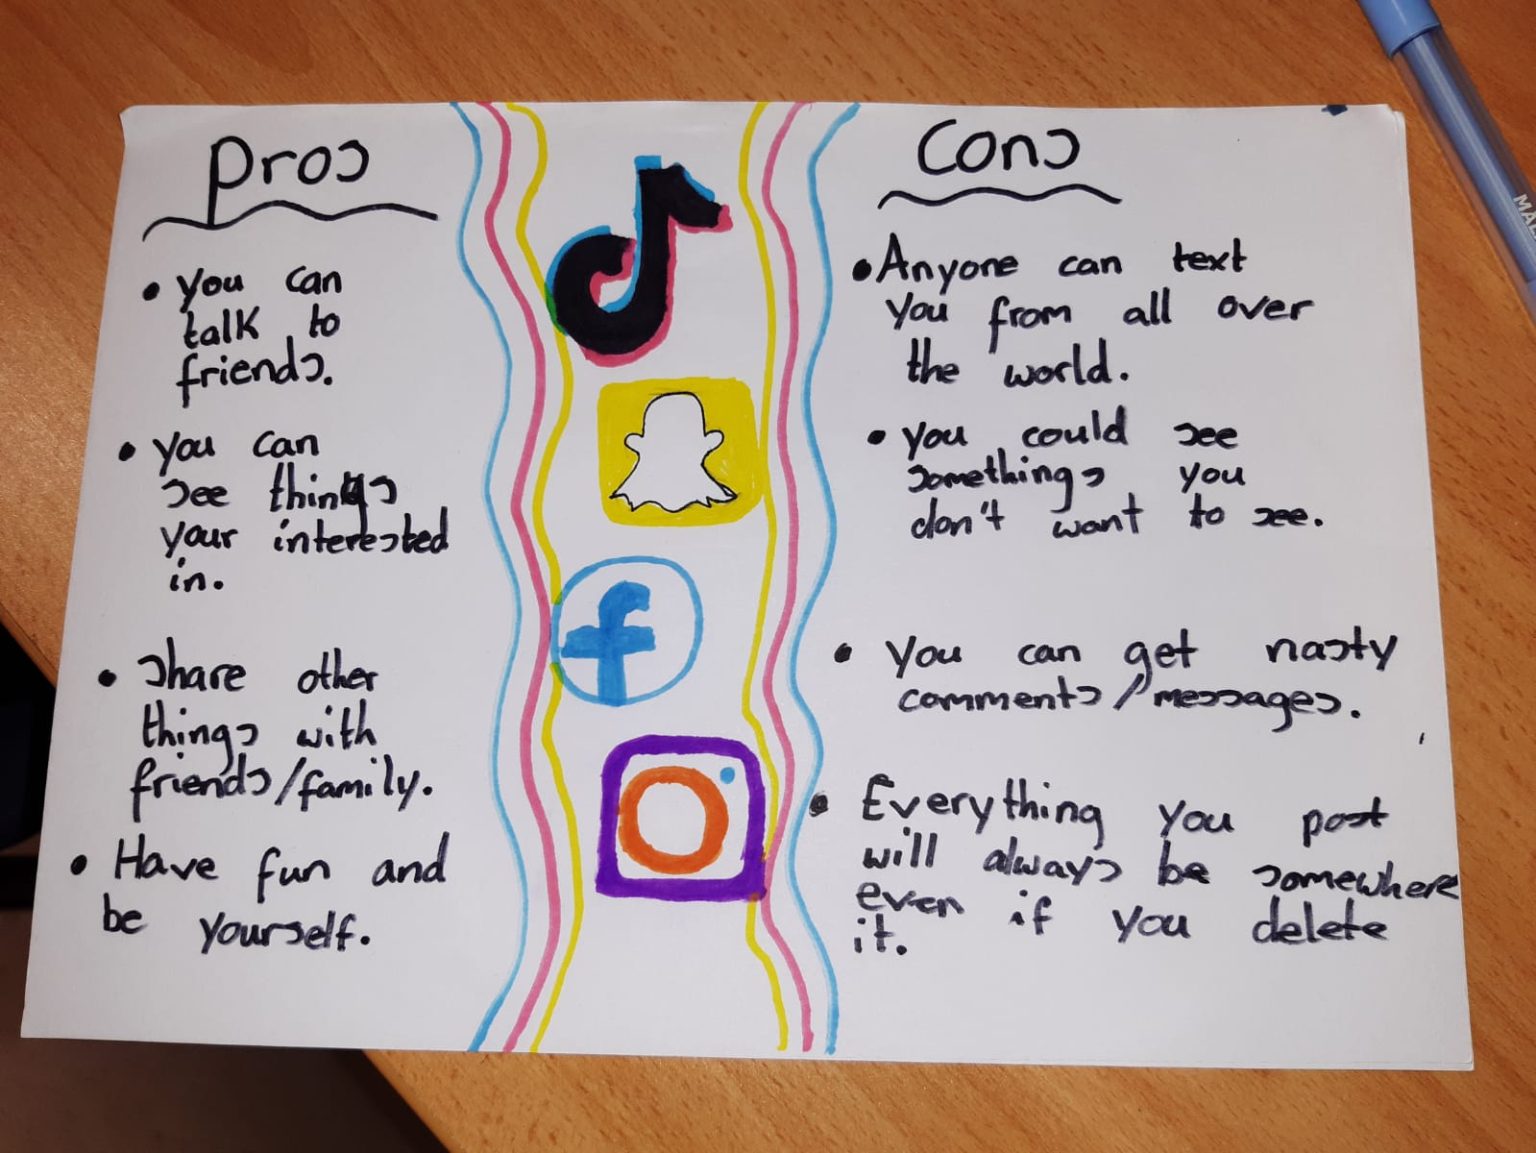 Pros
• you can
talk to
friends.
• you can
see things
your interested
in.
• share other
things with
friends/family.
• Have fun and
be yourself.
Cons
• Anyone can text
you from all over
the world.
• you could see
somethings you
don't want to see.
• you can get nasty
comments/messages.
• Everything you post
will always be somewhere
even if you delete
it.